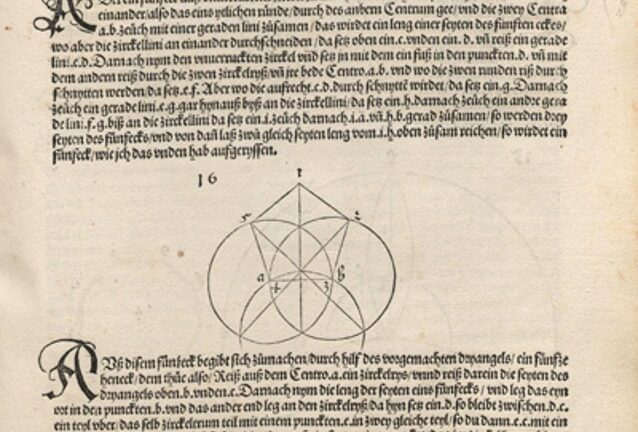 einander/also das eins yetlichen ründe/durch des andern Centrum gee/vnd die zwey Centra
a.b.zeüch mit einer geraden lini züsamen/das wirdet ein leng einer seyten des fünften eckes/
wo aber die zirckellini an einander durchschneiden/da setz oben ein.c.vnden ein.d.vñ reiß ein gerade
lini.c.d.Darnach nym den vnuerruckten zirckel vnd setz in mit dem ein fuß in den puncktẽ.d.vñ mit
dem andern reiß durch die zwen zirckelryß/vñ jre bede Centro.a.b.vnd wo die zwen runden riß durch
schnytten werden/da setz.e.f.Aber wo die aufrecht.c.d.durch schnytẽ wirdet/da setz ein.g.Darnach
zeüch ein gerade lini.e.g.gar hynauß byß an die zirckellini/da setz ein.h.darnach zeüch ein andre gera
de lini.f.g.biß an die zirckellini da setz ein.i.zeüch darnach.i.a.vñ.h.b.gerad züsamen/so werden drey
seyten des fünfecks/vnd von dañ laß zwo gleich seyten leng vom.i.h.oben züsam reichen/so wirdet ein
fünfeck/wie jch das vnden hab aufgeryssen.
16
1
5 2
a b
4 3
AVß disem fünfeck begibt sich zümachen/durch hilf des vorgemachten dryangels/ein fünfze
heneck/dem thüe also/Reiß auß dem Centro.a.ein zirckelrys/vnnd reiß darein die seyten des
dryangels oben.b.vnden.c.Darnach nym die leng der seyten eins fünfecks/vnd leg das eyn
ort in den puncktẽ.b.vnd das ander end leg an den zirckelryß/da hyn setz ein.d.so bleibt zwischen.d.c.
ein teyl vber/das selb zirckeltrum teil mit einem puncktẽ.e.in zwey gleiche teyl/so du dann.e.c.mit ein